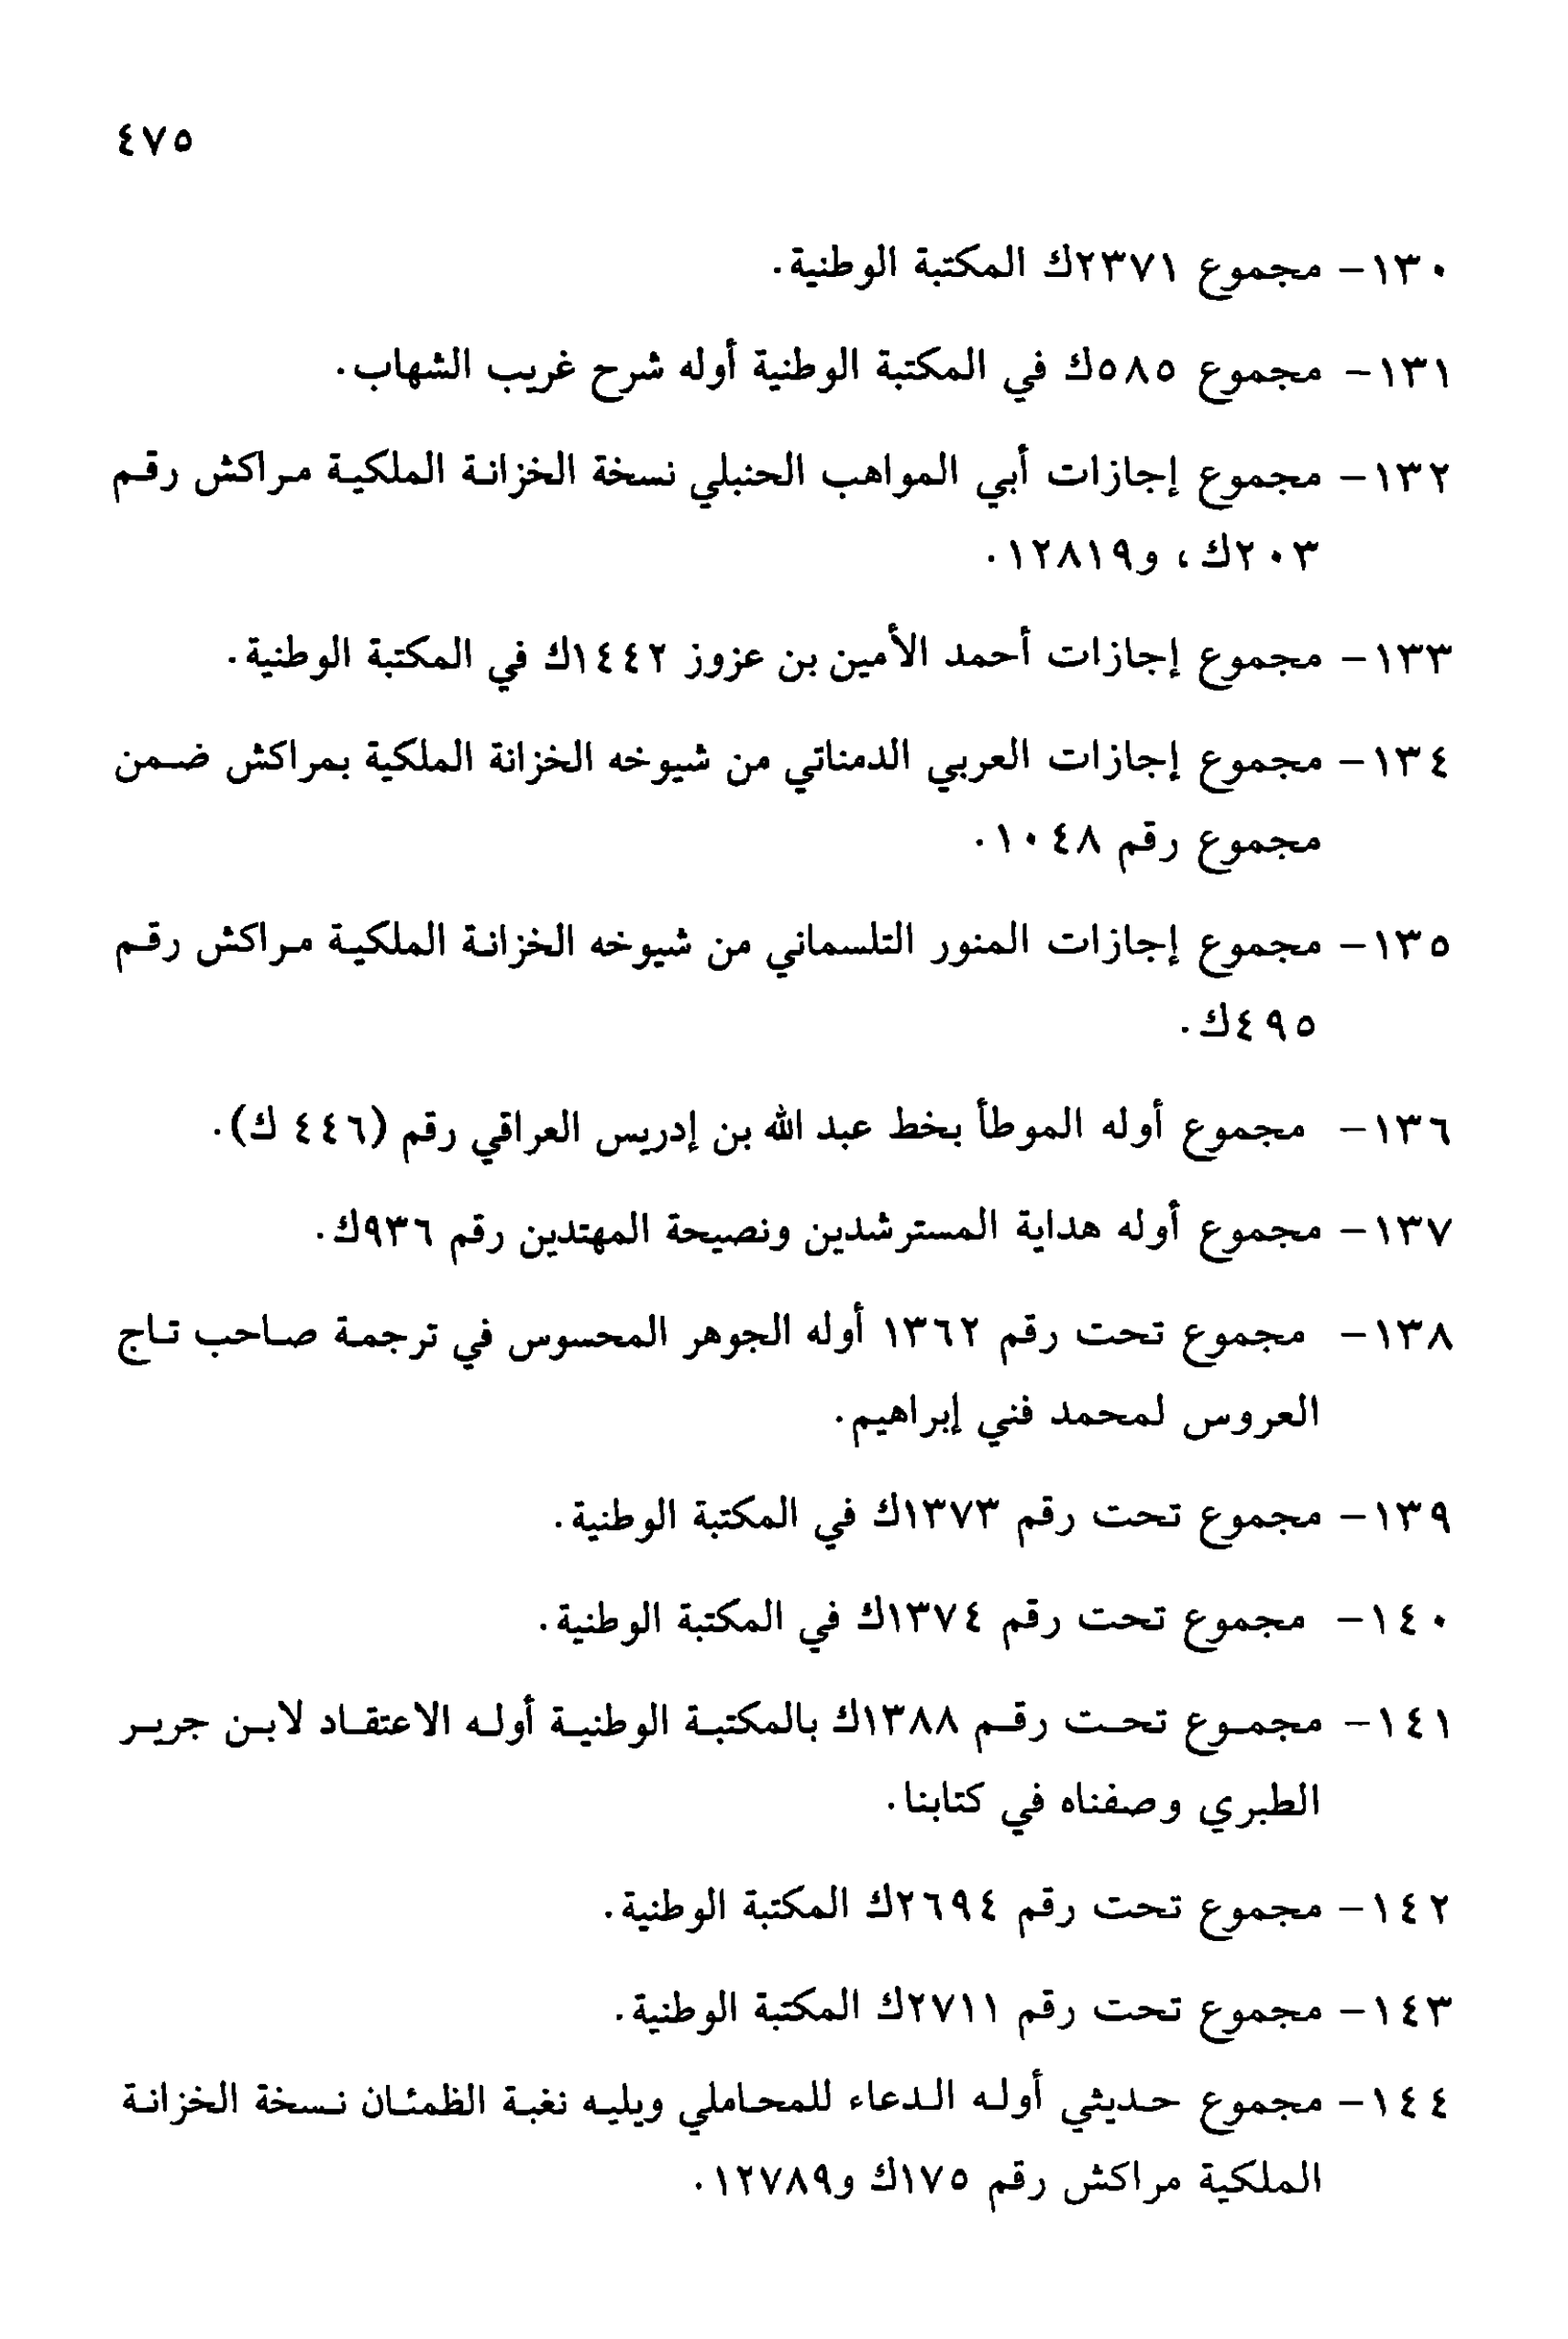 ٤٧٥
١٣٠- مجموع ٢٣٧١ك المكتبة الوطنية.
١٣١- مجموع ٥٨٥ك في المكتبة الوطنية أوله شرح غريب الشهاب.
١٣٢- مجموع إجازات أبي المواهب الحنبلي نسخة الخزانة الملكية مراكش رقم
٢٠٣ك، و١٢٨١٩.
١٣٣- مجموع إجازات أحمد الأمين بن عزوز ١٤٤٢ك في المكتبة الوطنية.
١٣٤- مجموع إجازات العربي الدمناتي من شيوخه الخزانة الملكية بمراكش ضمن
مجموع رقم ١٠٤٨.
١٣٥- مجموع إجازات المنور التلسماني من شيوخه الخزانة الملكية مراكش رقم
٤٩٥ك.
١٣٦- مجموع أوله الموطأ بخط عبد الله بن إدريس العراقي رقم (٤٤٦ ك).
١٣٧- مجموع أوله هداية المسترشدين ونصيحة المهتدين رقم ٩٣٦ك.
١٣٨- مجموع تحت رقم ١٣٦٢ أوله الجوهر المحسوس في ترجمة صاحب تاج
العروس لمحمد فني إبراهيم.
١٣٩- مجموع تحت رقم ١٣٧٣ك في المكتبة الوطنية.
١٤٠- مجموع تحت رقم ١٣٧٤ك في المكتبة الوطنية.
١٤١- مجموع تحت رقم ١٣٨٨ك بالمكتبة الوطنية أوله الاعتقاد لابن جرير
الطبري وصفناه في كتابنا.
١٤٢- مجموع تحت رقم ٢٦٩٤ك المكتبة الوطنية.
١٤٣- مجموع تحت رقم ٢٧١١ك المكتبة الوطنية.
١٤٤- مجموع حديثي أوله الدعاء للمحاملي ويليه نغبة الظمئان نسخة الخزانة
الملكية مراكش رقم ١٧٥ك و١٢٧٨٩.